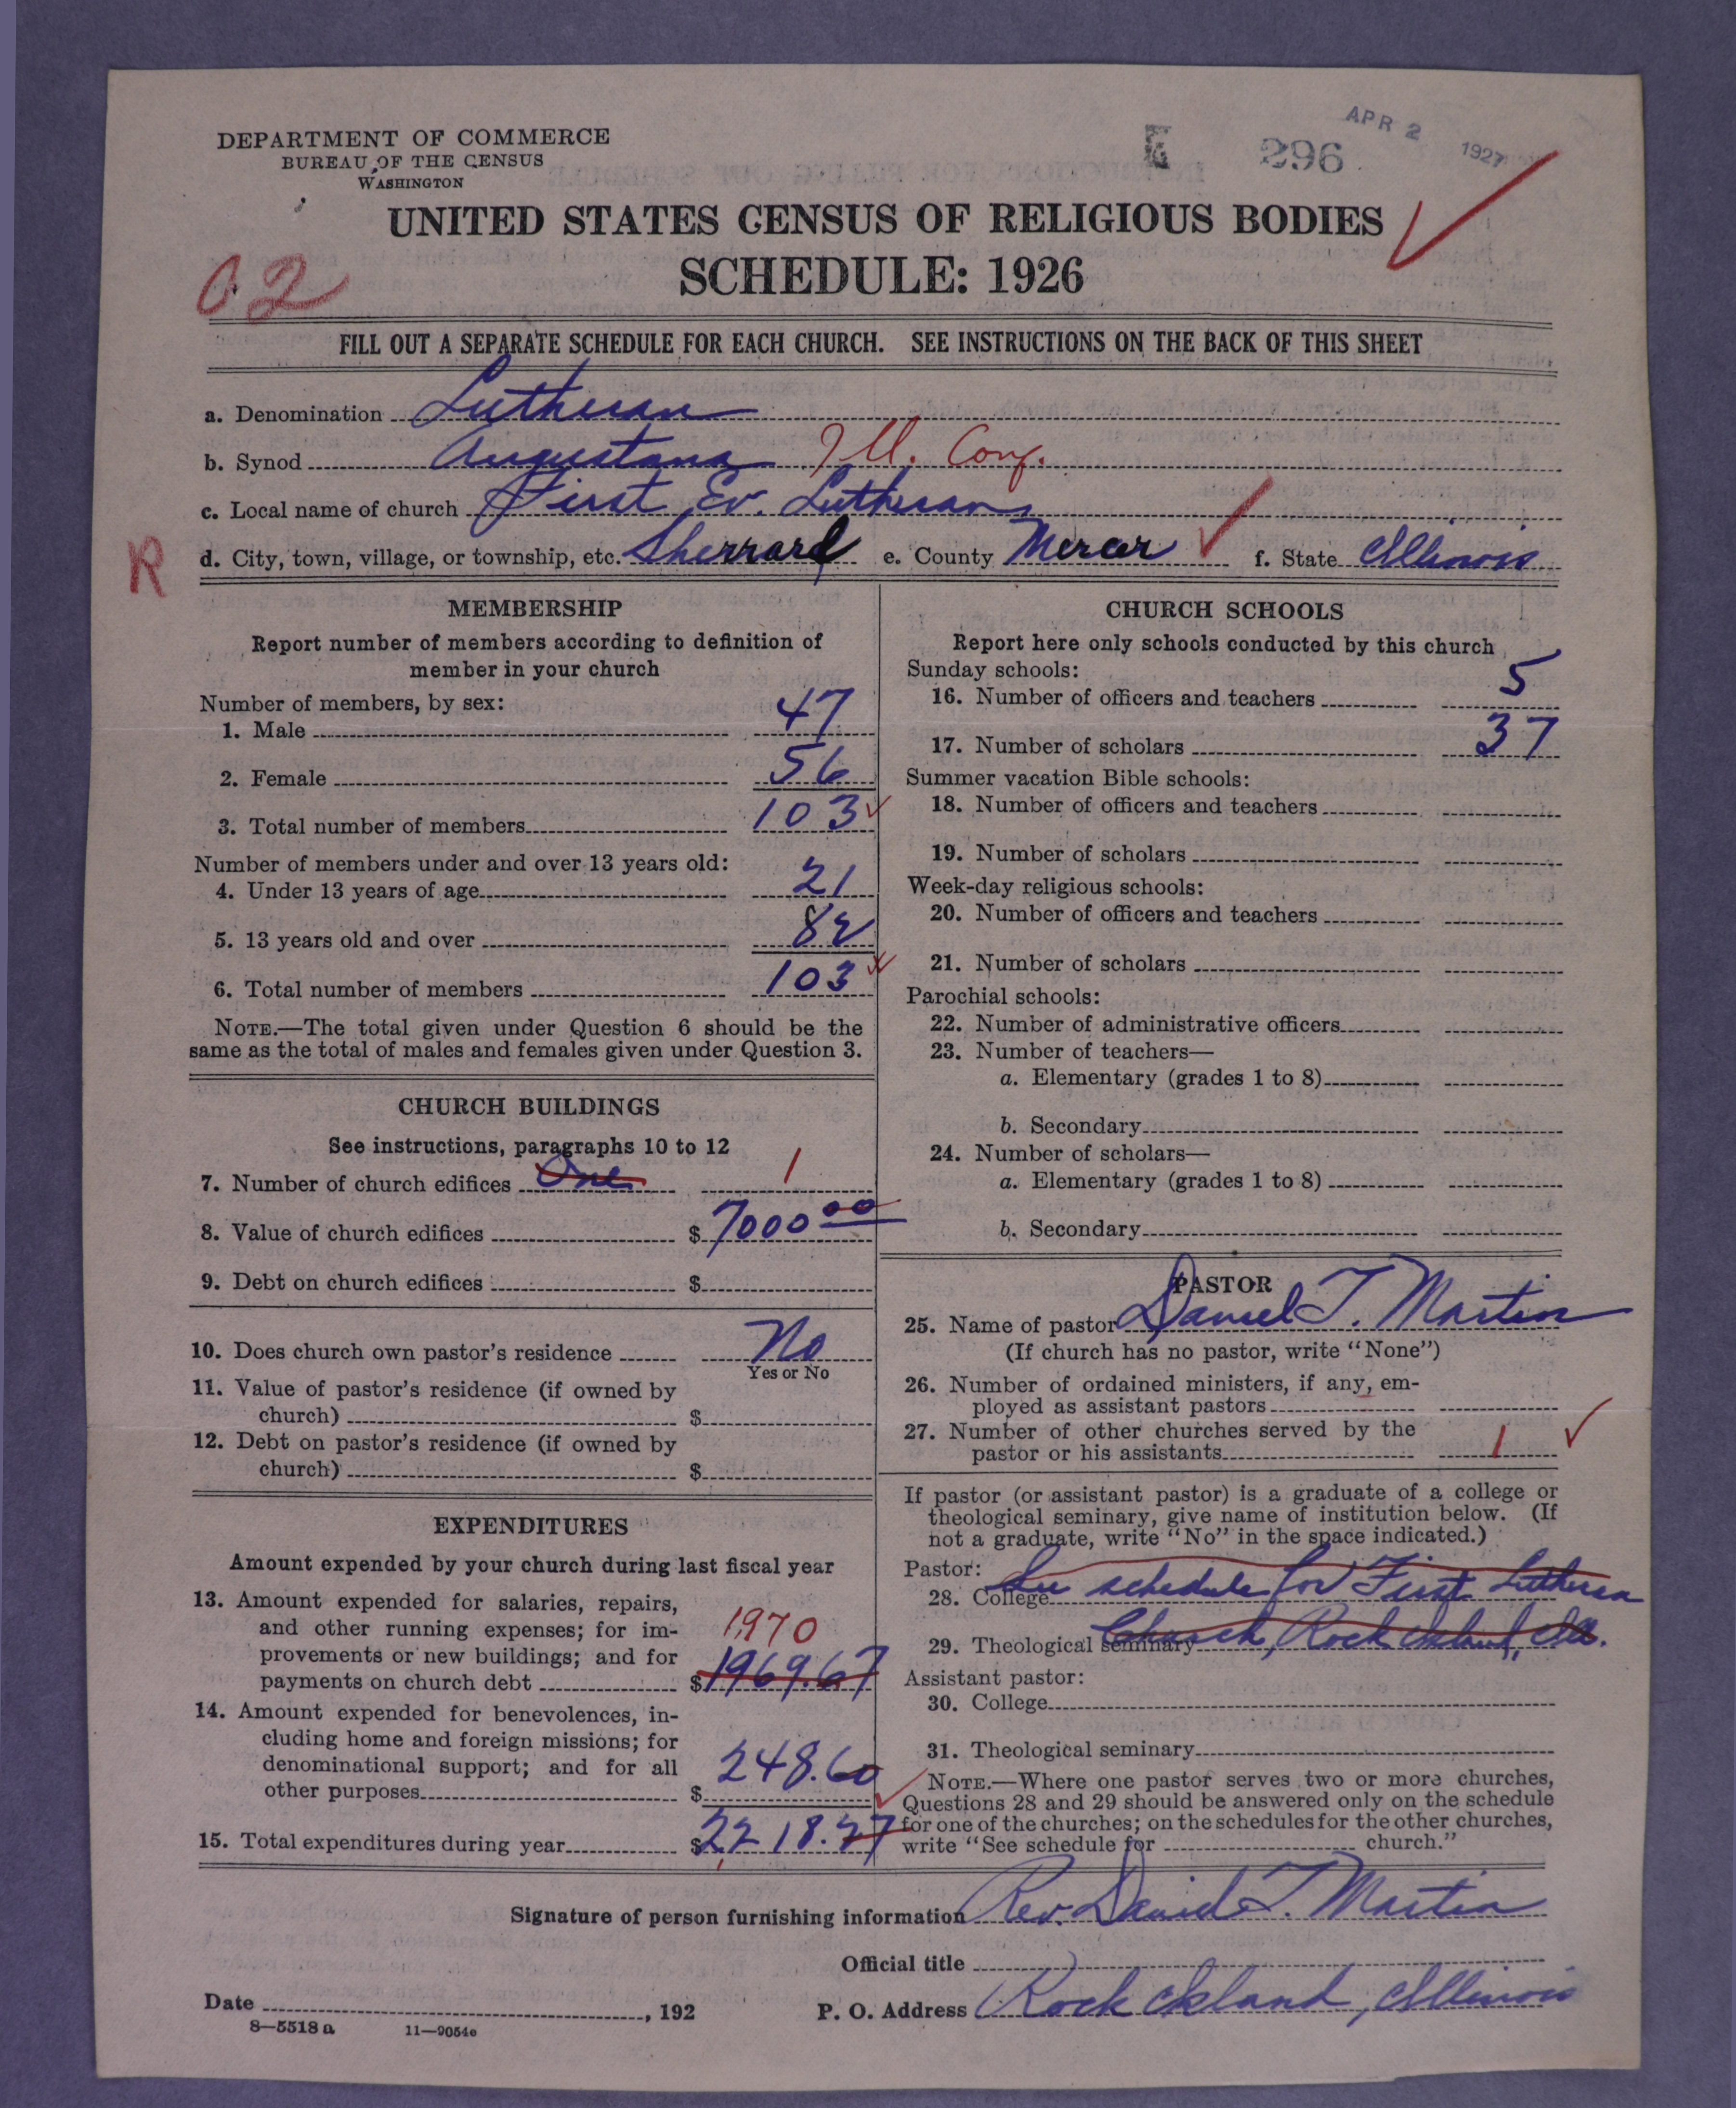 DEPARTMENT OF COMMERCE
BUREAU OF THE CENSUS
WASHINGTON
296
APR 2 1927
UNITED STATES CENSUS OF RELIGIOUS BODIES
SCHEDULE: 1926
02
FILL OUT A SEPARATE SCHEDULE FOR EACH CHURCH. SEE INSTRUCTIONS ON THE BACK OF THIS SHEET
a. Denomination Lutheran
b. Synod Augustana Ill. Conf.
c. Local name of church First Ev. Lutheran
R
d. City, town, village, or township, etc. Sherrard e. County Mercer f. State Illinois
MEMBERSHIP
Report number of members according to definition of
member in your church
Number of members, by sex:
1. Male 47
2. Female 56
3. Total number of members 103
Number of members under and over 13 years old:
4. Under 13 years of age 21
5. 13 years old and over 82
6. Total number of members 103
NOTE.—The total given under Question 6 should be the
same as the total of males and females given under Question 3.
CHURCH BUILDINGS
See instructions, paragraphs 10 to 12
7. Number of church edifices One 1
8. Value of church edifices $ 7000 00
9. Debt on church edifices $
10. Does church own pastor's residence No
Yes or No
11. Value of pastor's residence (if owned by
church) $
12. Debt on pastor's residence (if owned by
church) $
EXPENDITURES
Amount expended by your church during last fiscal year
13. Amount expended for salaries, repairs,
and other running expenses; for im-
provements or new buildings; and for
payments on church debt $ 1969.67
1970
14. Amount expended for benevolences, in-
cluding home and foreign missions; for
denominational support; and for all
other purposes $ 248.60
15. Total expenditures during year $ 2218.27
CHURCH SCHOOLS
Report here only schools conducted by this church
Sunday schools:
16. Number of officers and teachers 5
17. Number of scholars 37
Summer vacation Bible schools:
18. Number of officers and teachers
19. Number of scholars
Week-day religious schools:
20. Number of officers and teachers
21. Number of scholars
Parochial schools:
22. Number of administrative officers
23. Number of teachers—
a. Elementary (grades 1 to 8)
b. Secondary
24. Number of scholars—
a. Elementary (grades 1 to 8)
b. Secondary
PASTOR
25. Name of pastor Daniel T. Martin
(If church has no pastor, write "None")
26. Number of ordained ministers, if any, em-
ployed as assistant pastors
27. Number of other churches served by the
pastor or his assistants 1
If pastor (or assistant pastor) is a graduate of a college or
theological seminary, give name of institution below. (If
not a graduate, write "No" in the space indicated.)
Pastor:
28. College See schedule for First Lutheran
29. Theological seminary Church, Rock Island, Ill.
Assistant pastor:
30. College
31. Theological seminary
NOTE.—Where one pastor serves two or more churches,
Questions 28 and 29 should be answered only on the schedule
for one of the churches; on the schedules for the other churches,
write "See schedule for church."
Signature of person furnishing information Rev. Daniel T. Martin
Official title
Date , 192
P. O. Address Rock Island, Illinois
8—5518 a 11—9054c